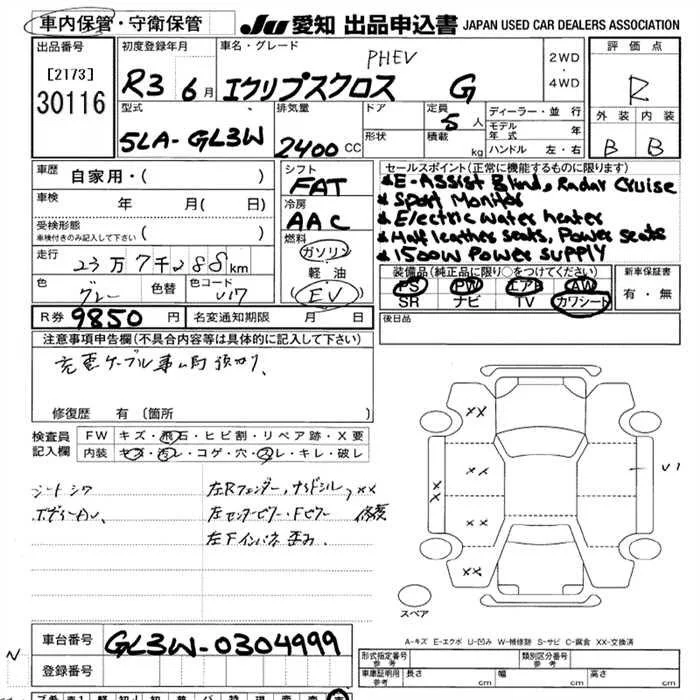 車内保管・守衛保管 JU 愛知 出品申込書 JAPAN USED CAR DEALERS ASSOCIATION
出品番号 初度登録年月 車名・グレード 評価点
[2173] R3 6月 PHEV 2WD
30116 エクリプスクロス G ・
4WD R
型式 排気量 ドア 定員 5人 ディーラー・並行 外装 内装
モデル年式 年
5LA-GL3W 2400CC 形状 積載 kg ハンドル 左・右 B B
車歴 自家用・( ) シフト セールスポイント(正常に機能するものに限ります)
FAT *E-Assist Blind, Radar Cruise
車検 年 月( 日) 冷房 *Sport Monitor
AAC *Electric water heater
受検形態
車検付きのみ記入して下さい ( ) 燃料 *Half leather seats, Power seats
走行 23万7千288km ガソリン *1500W Power supply
軽油 装備品(純正品に限り○をつけてください) 新車保証書
色 グレー 色替 色コード U17 EV PS PW エアB AW 有・無
SR ナビ TV カワシート
R券 9850円 名変通知期限 月 日 後日品
注意事項申告欄(不具合内容等は具体的に記入して下さい)
充電ケーブル事ム局預かり、
修復歴 有 〔箇所 〕
検査員 FW キズ・飛石・ヒビ割・リペア跡・X要
記入欄 内装 キズ・汚レ・コゲ・穴・スレ・キレ・破レ
シートシワ 左Rフェンダー,
XX
左センターピラー・Fピラー 修復
左Fインパネ歪み.
XX
XX
XX
XX
XX
U1
スペア
A-キズ E-エクボ U-凹み W-補修跡 S-サビ C-腐食 XX-交換済
車台番号 GL3W-0304999
登録番号
形式指定番号 参考 類別区分番号 参考
車庫証明用 参考 長さ cm 幅 cm 高さ cm
N